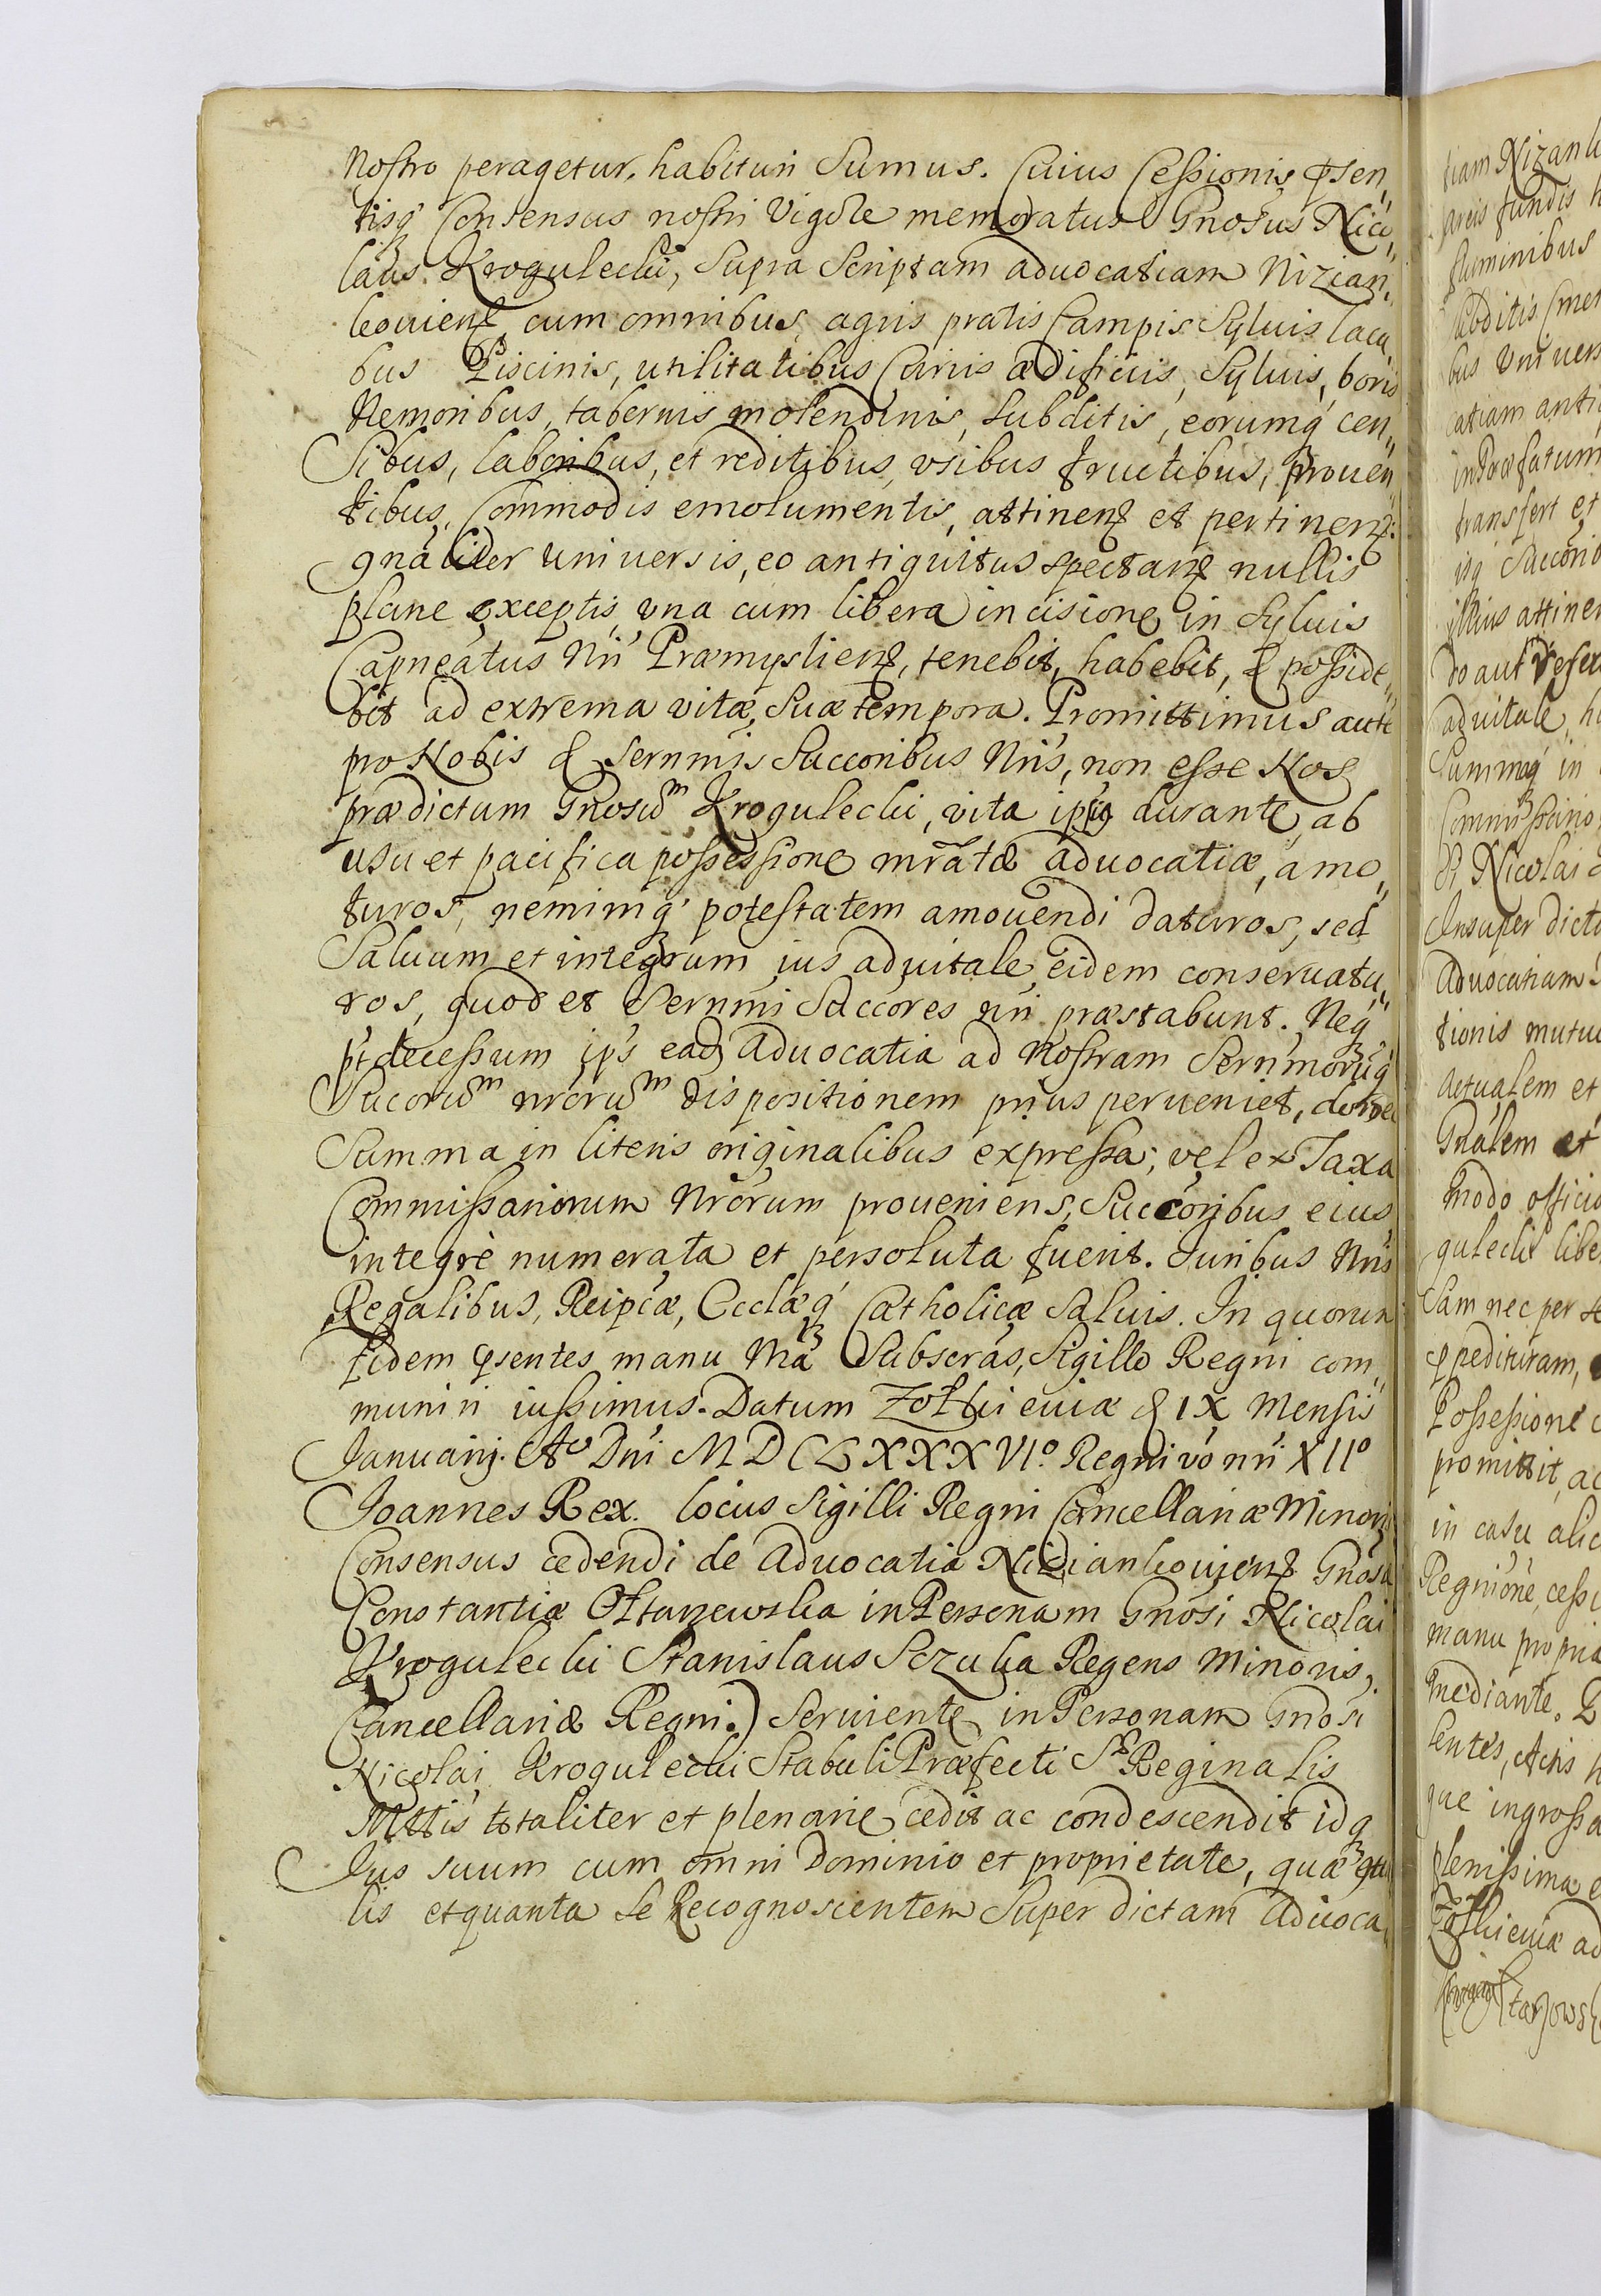 Nostro peragetur, habituri Sumus. Cuius Cessionis Psen„
tisq Consensus nostri Vigore memoratus Gnosus Nico„
laus Krogulecki, Supra Scriptam aduocatiam Nizian„
kouiens, cum omnibus agris pratis Campis Syluis lacu„
bus Piscinis, utilitatibus Curiis ædificiis, Syluis, boris
Nemoribus, tabernis molendinis, Subditis, eorumq cen„
Sibus, laboribus, et reditibus usibus fructibus, prouen
tibus, Commodis emolumentis, attinens et pertinens.
gnaliter uniuersis, eo antiquitus spectans nullis
plane exceptis una cum libera incisione in Syluis
Capneatus Nri Præmysliens, tenebit, habebit, & posside„
bit ad extrema vitæ Suæ tempora. Promittimus aute
pro Nobis & Sernmis Succoribus Nris, non esse Nos
prædictum Gnosum Krogulecki, vita ipsius durante, ab
usu et pacifica possessione mratæ aduocatiæ, amo„
turos, neminiq potestatem amouendi daturos, sed
Saluum et integrum ius aduitale eidem conseruatu„
ros, quod et Sernmi Succores nri præstabunt. Neq
pt decessum ips ead Aduocatia ad Nostram Sernmorumq
Sucorum nrorum dispositionem prius perueniet, donec
Summa in literis originalibus expressa, vel ex Taxa
Commissariorum Nrorum proueniens, Succoribus eius
integrè numerata et persoluta fuerit. Iuribus Nris
Regalibus, Reipcæ, Ecclæq Catholicæ Saluis. In quorum
fidem psentes manu Nra Subscras, Sigillo Regni com„
muniri iussimus. Datum Zołkieuiæ d IX Mensis
Januarij. Ao Dni MDCLXXXVIo. Regni vo nri XIIo
Joannes Rex. locus Sigilli Regni Cancellariæ Minoris
Consensus cedendi de Aduocatia Niziankouiens Gnosæ
Constantiæ Ołtarzewska in Personam Gnosi Nicolai
Krogulecki Stanislaus Szczuka Regens Minoris
Cancellariæ Regni.) Seruiente in Personam Gnosi
Nicolai Krogulecki Stabuli Præfecti Sæ Reginalis
Mttis totaliter et plenarie cedit ac condescendit idq
Ius suum cum omni Dominio et proprietate, quæ
lis et quanta Se Recognoscentem Super dictam Aduoca„
tiam Nizank
fundis
fluminibus
Subditis
bus Uniuers
catiam anti
in Præfatum
transfert et
isq Succorib
illius attinen
do aut
aduitale
Summaq in
Nicolai
Insuper dict
Aduocatiam
tionis mutu
Actualem et
Gnalem et
modo officio
gulecki libe
Sam nec per
pedituram,
Possessione
promittit, ac
in casu alic
cessi
manu propria
mediante.
sentes, Actis
que ingrossa
plenissima
Zołkieuiæ ad